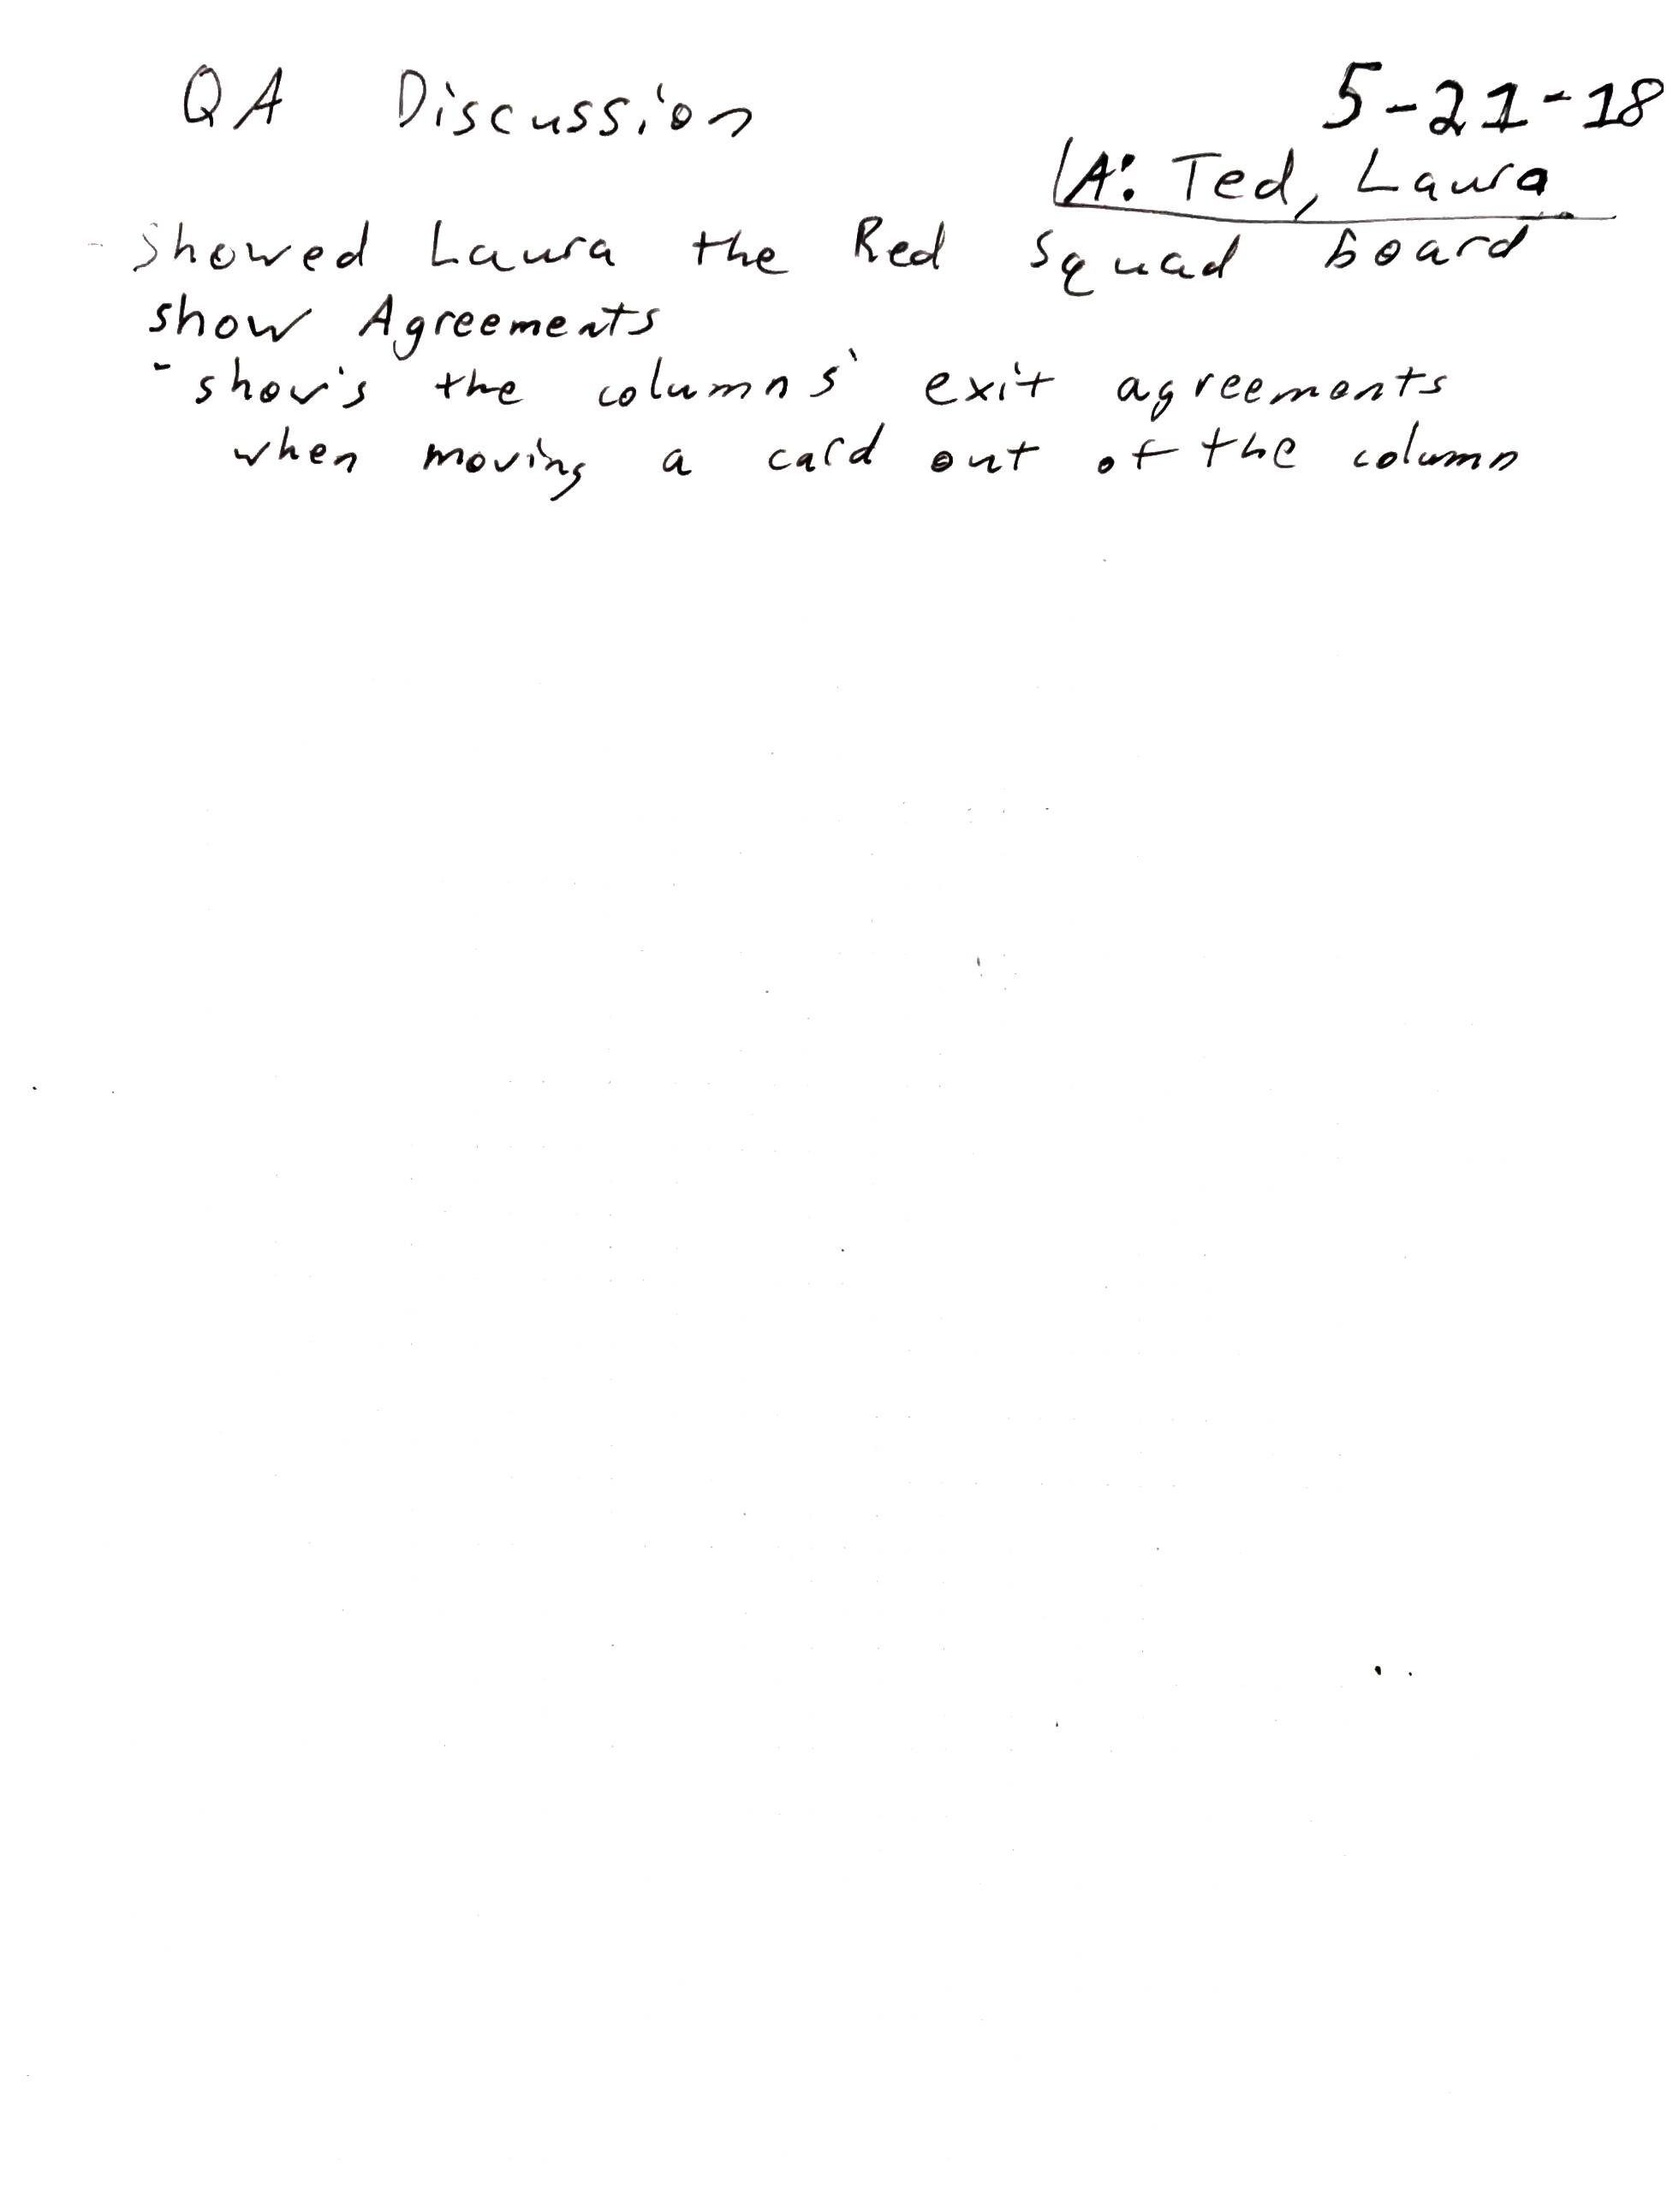 QA Discussion 5-21-18
A: Ted, Laura
- Showed Laura the Red Squad board
show Agreements
- show's the columns' exit agreements
when moving a card out of the column